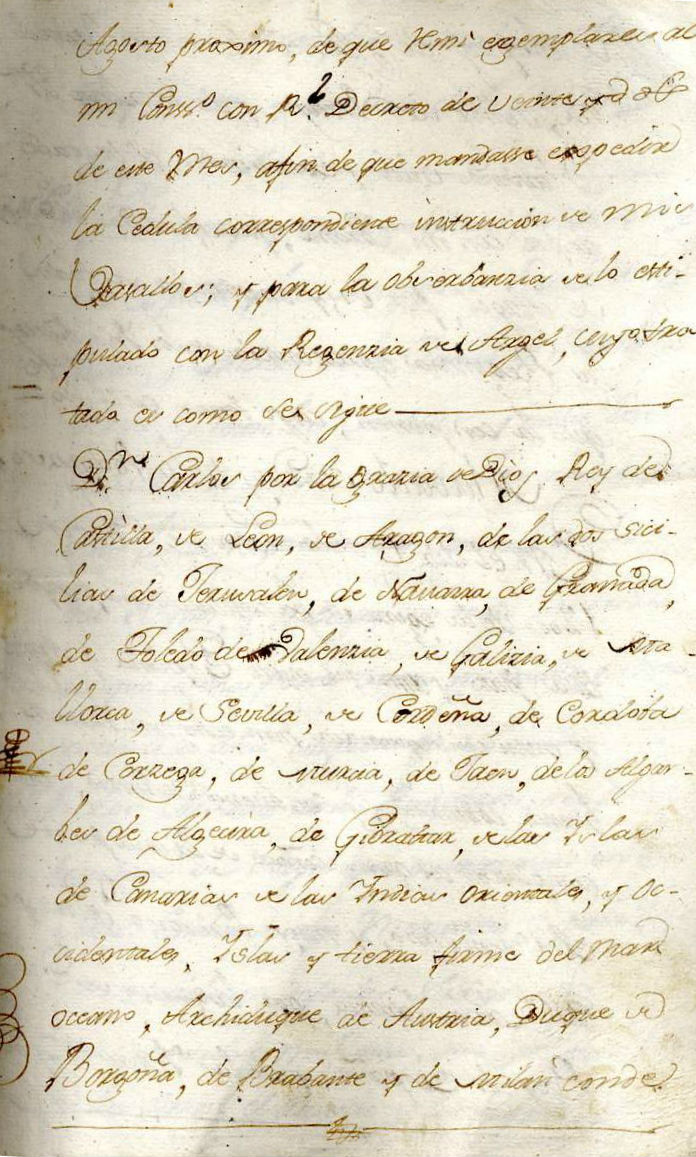 Agosto proximo, de que remi exemplares al
mi Conss.º con R.l Decreto de veinte y
de este Mes, afin de que mandasse expedir
la Cedula correspondiente instruccion de mis
Vasallos; y para la observanzia de lo esti-
pulado con la Regenzia de Argel, cuyo tra
tado es como se sigue
Dn. Carlos por la grazia de Dios Rey de
Castilla, de Leon, de Aragon, de las dos sici-
lias de Jerusalen, de Navarra, de Granada,
de Toledo de Valenzia, de Galizia, de Ma
llorca, de Sevilla, de Cerdeña, de Cordoba
de Corzega, de Murcia, de Jaen, de los Algar-
bes de Algecira, de Gibraltar, de las Yslas
de Canarias de las Yndias orientales, y Oc-
cidentales, Yslas y tierra firme del Mar
oceano, Archiduque de Austria, Duque de
Borgoña, de Brabante y de Milan conde